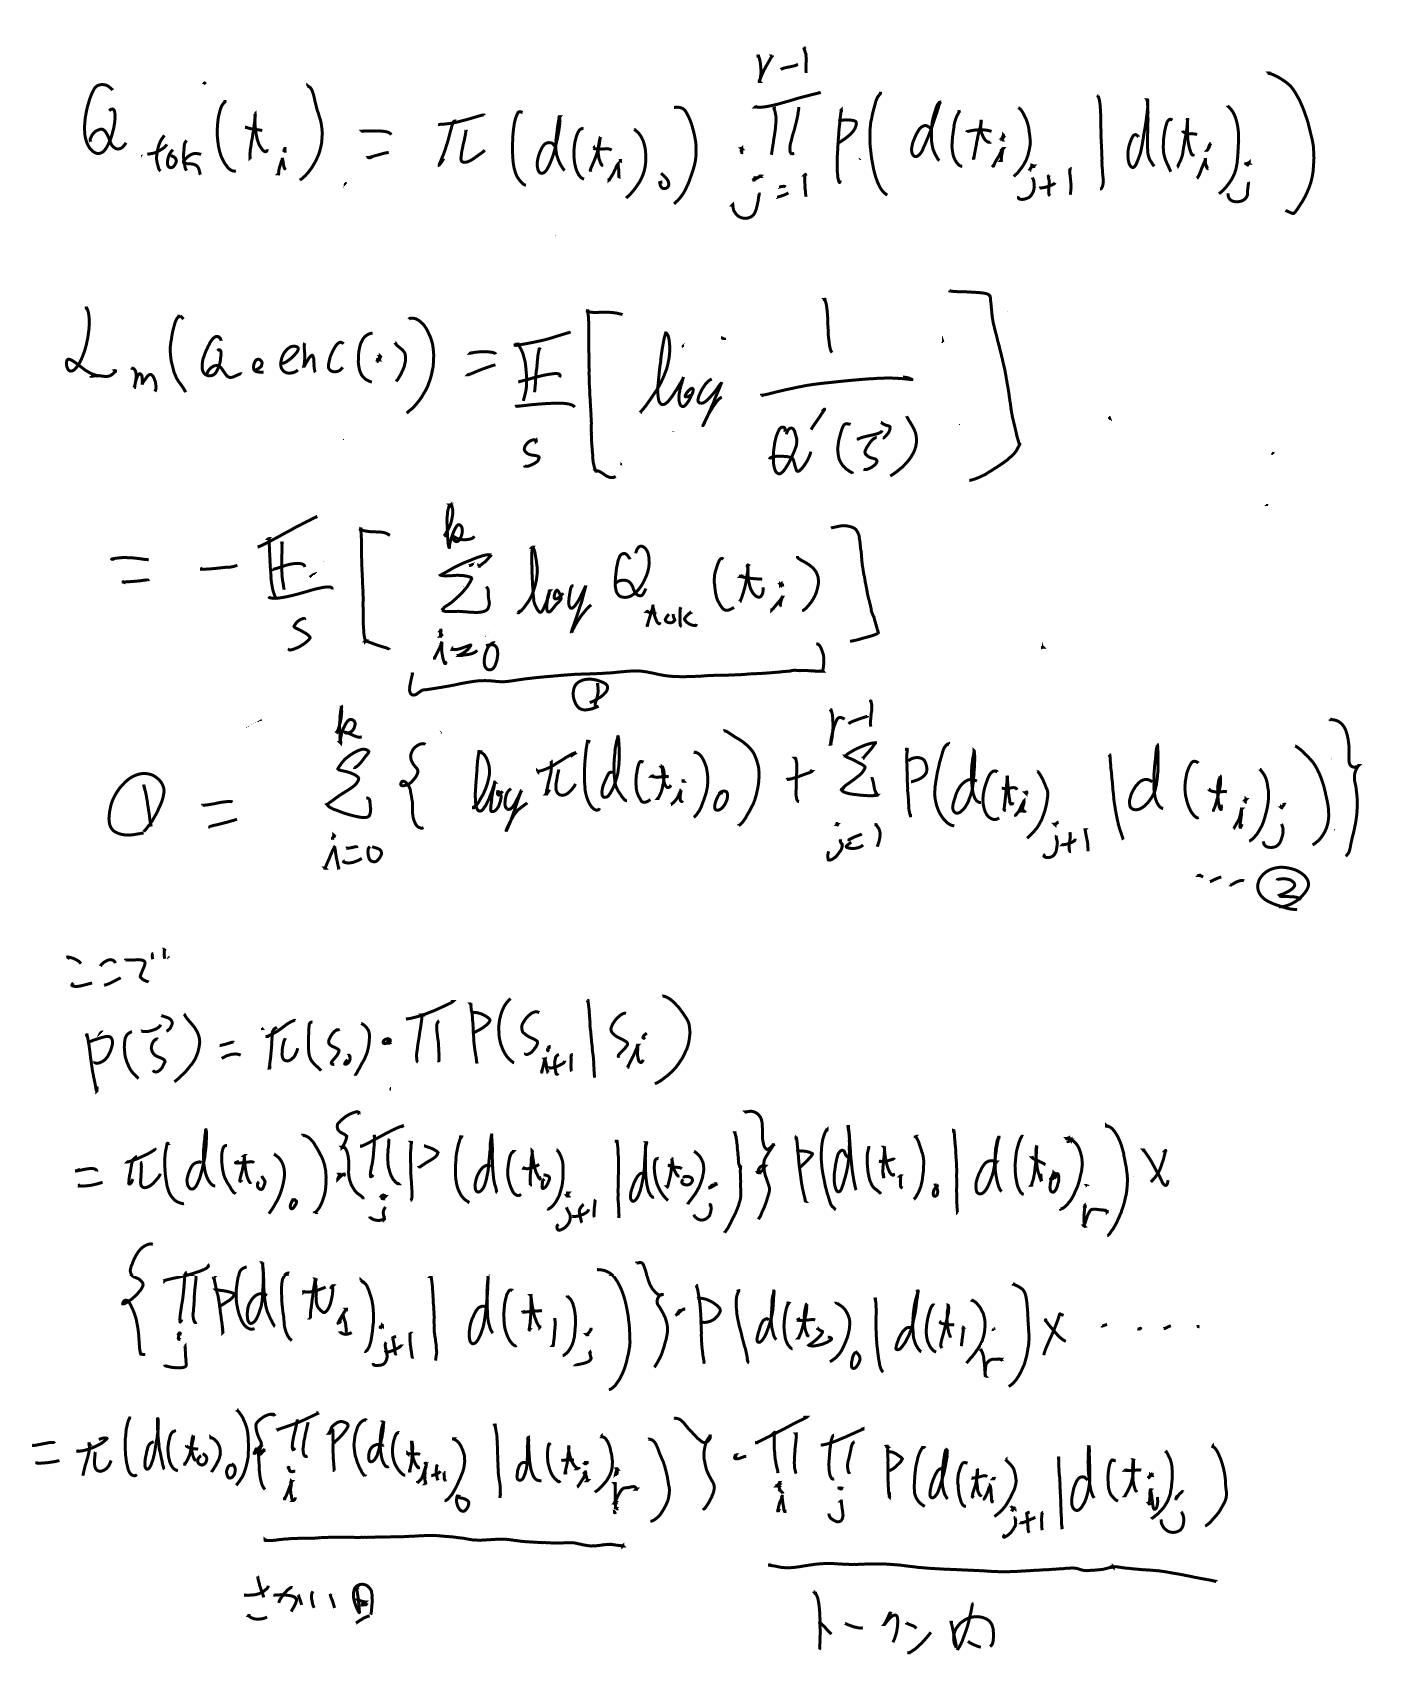 Q_tok(t_i) = π(d(t_i)_0) · ∏_{j=1}^{r-1} P(d(t_i)_{j+1} | d(t_i)_j)
ℒ_m(Q∘enc(·)) = 𝔼_s [ log 1/Q′(s⃗) ]
= − 𝔼_s [ ∑_{i=0}^{k} log Q_tok(t_i) ]
①
① = ∑_{i=0}^{k} { log π(d(t_i)_0) + ∑_{j=1}^{r-1} P(d(t_i)_{j+1} | d(t_i)_j) }
... ②
ここで
P(s⃗) = π(s_0) · ∏ P(s_{i+1} | s_i)
= π(d(t_0)_0) {∏_j P(d(t_0)_{j+1} | d(t_0)_j)} P(d(t_1)_0 | d(t_0)_r) ×
{∏_j P(d(t_1)_{j+1} | d(t_1)_j)} · P(d(t_2)_0 | d(t_1)_r) × ····
= π(d(t_0)_0) {∏_i P(d(t_{i+1})_0 | d(t_i)_r)} · ∏_i ∏_j P(d(t_i)_{j+1} | d(t_i)_j)
さかい目
トークン内